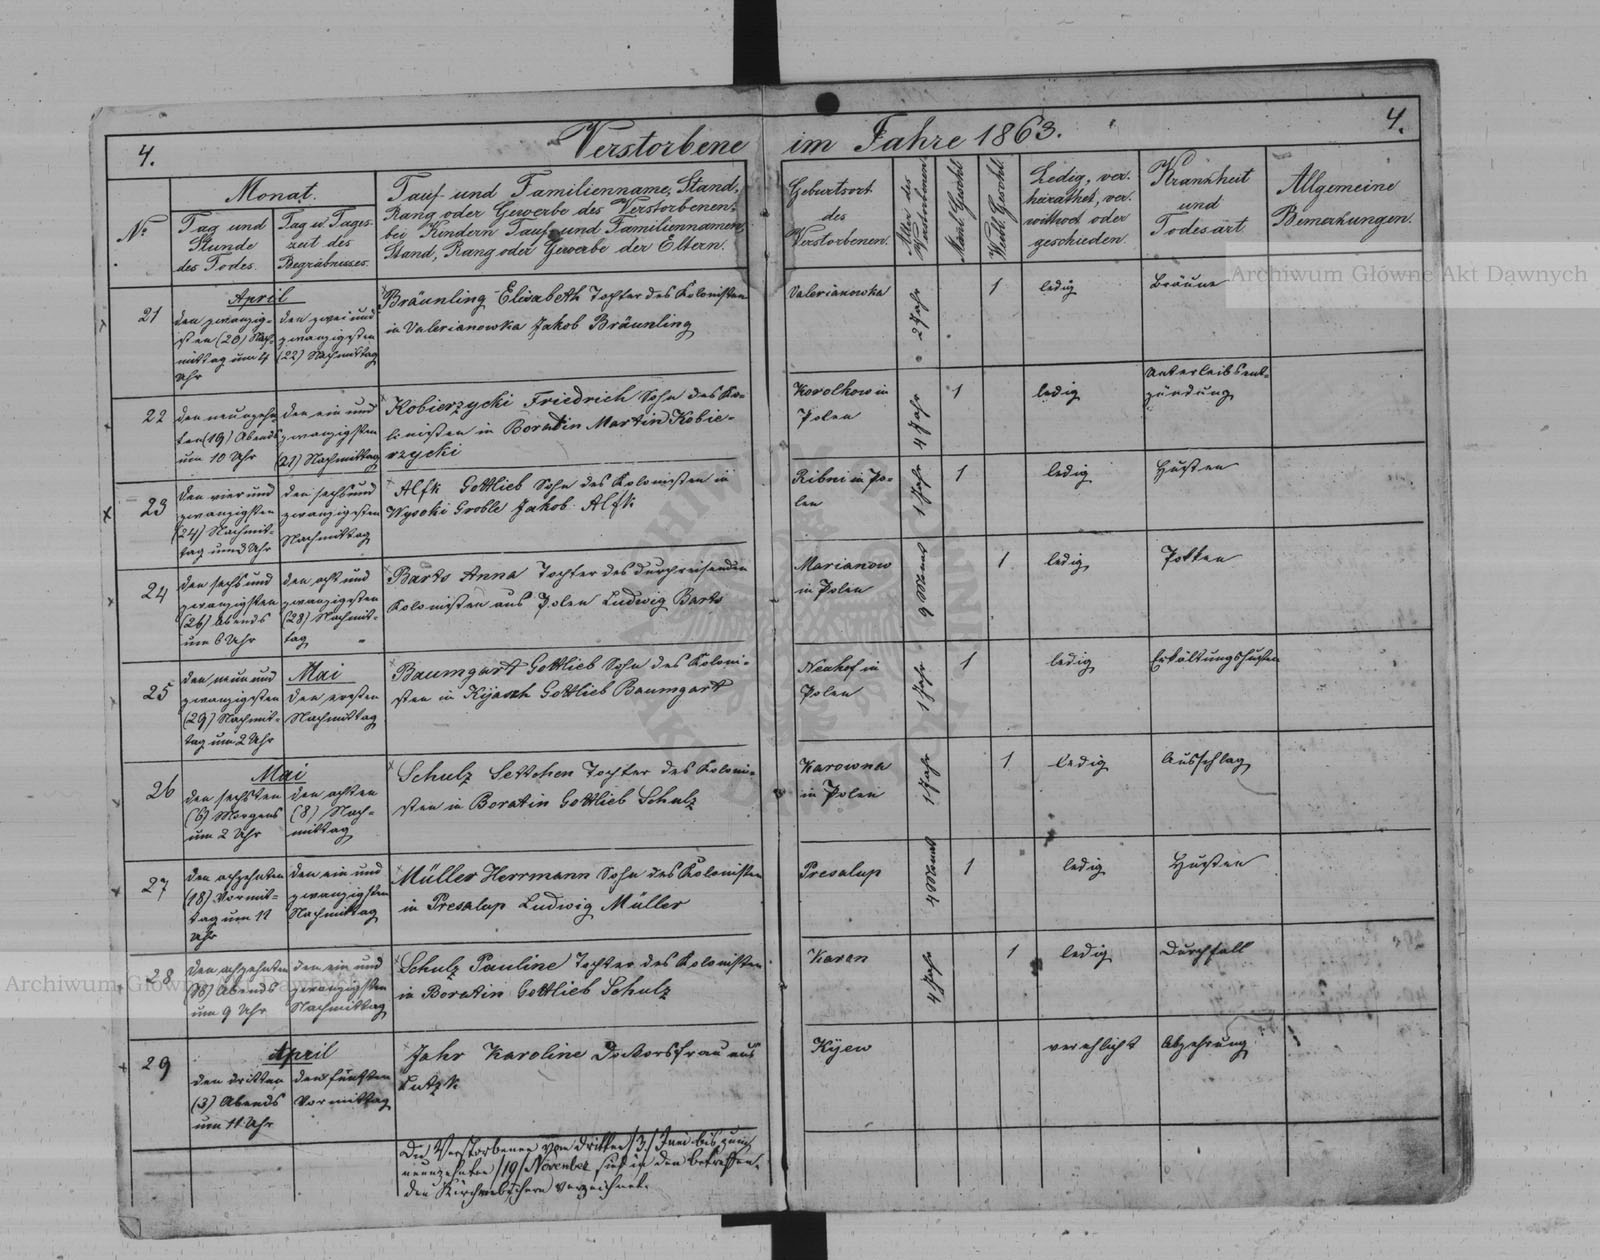 4.
Verstorbene im Jahre 1863.
4.
Nº
Monat.
Tag und
Stunde
des Todes.
Tag u. Tages-
zeit des
Begräbnisses.
Tauf- und Familienname, Stand,
Rang oder Gewerbe des Verstorbenen,
bei Kindern Tauf- und Familiennamen,
Stand, Rang oder Gewerbe der Eltern.
Geburtsort
des
Verstorbenen.
Alter des
Verstorbenen
Männl. Geschl.
Weibl. Geschl.
Ledig, ver-
heirathet, ver-
wittwet oder
geschieden.
Krankheit
und
Todesart.
Allgemeine
Bemerkungen.
21
April
den zwanzig-
sten (20) Nach-
mittag um 4
Uhr
den zwei und
zwanzigsten
(22) Nachmittag
Bräunling Elisabeth Tochter des Kolonisten
in Valerianowka Jakob Bräunling
Valerianowka
2 Jahr
1
ledig
Bräune
22
den neunzehn-
ten (19) Abends
um 10 Uhr
den ein und
zwanzigsten
(21) Nachmittag
Kobierzycki Friedrich Sohn des Ko-
lonisten in Boratin Martin Kobie-
rzycki
Korolkow in
Polen
4 Jahr
1
ledig
Unterleibsent-
zündung
23
den vier und
zwanzigsten
(24) Nachmit-
tag um Uhr
den sechs und
zwanzigsten
Nachmittag
Alfk Gottlieb Sohn des Kolonisten in
Wysoki Groble Jakob Alfk
Ribni in Po-
len
1 Jahr
1
ledig
Husten
24
den sechs und
zwanzigsten
(26) Abends
um 6 Uhr
den acht und
zwanzigsten
(28) Nachmit-
tag
Barts Anna Tochter des durchreisenden
Kolonisten aus Polen Ludwig Barts
Marianow
in Polen
9 Monat
1
ledig
Pokken
25
den neun und
zwanzigsten
(29) Nachmit-
tag um 2 Uhr
Mai
den ersten
Nachmittag
Baumgart Gottlieb Sohn des Koloni-
sten in Gottlieb Baumgart
Neuhof in
Polen
1 Jahr
1
ledig
Erkältungshusten
26
Mai
den sechsten
(6) Morgens
um 2 Uhr
den achten
(8) Nach-
mittag
Schulz Settchen Tochter des Koloni-
sten in Boratin Gottlieb Schulz
Karowna
in Polen
1 Jahr
1
ledig
Ausschlag
27
den achzehnten
(18) Vormit-
tag um 11
Uhr
den ein und
zwanzigsten
Nachmittag
Müller Herrmann Sohn des Kolonisten
in Presalup Ludwig Müller
Presalup
4 Monat
1
ledig
Husten
28
den achzehnten
(18) Abends
um 9 Uhr
den ein und
zwanzigsten
Nachmittag
Schulz Pauline Tochter des Kolonisten
in Boratin Gottlieb Schulz
Karan
4 Jahr
1
ledig
Durchfall
29
April
den dritten
(3) Abends
um 11 Uhr
den fünften
Vormittag
Jahr Karoline Doktorsfrau aus
Lutzk
Kijew
verehlicht
Abzehrung
Die Verstorbenen vom dritten /3/ Juni bis zum
neunzehnten /19/ November sind in den betreffen-
den Kirchenbüchern verzeichnet.
Archiwum Główne Akt Dawnych
Archiwum Główne Akt Dawnych